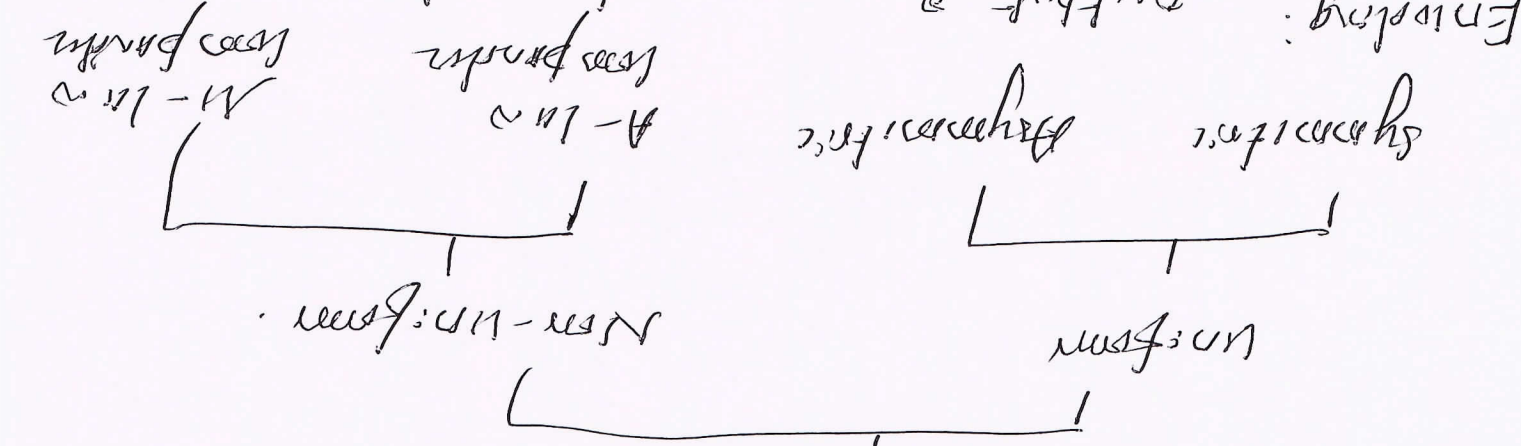 Uniform Non-Uniform.
Symmetric Asymmetric A-law M-law
companding companding
Encoding: